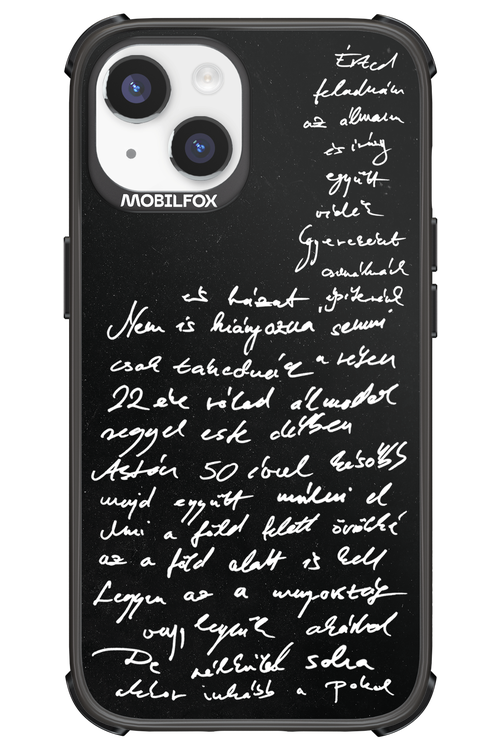 MOBILFOX
Érted
feladnám
az álmaim
és így
együtt
vidék
Gyerekeket
csinálnánk
és házat építenénk
Nem is hiányozna semmi
csak takednéz a réten
22 éve rólad álmodok
reggel este délben
Aztán 50 évvel később
majd együtt múlni el
Ami a föld felett örökké
az a föld alatt is kell
Legyen az a mennyország
vagy legyünk akárhol
De nélküled soha
akkor inkább a Pokol